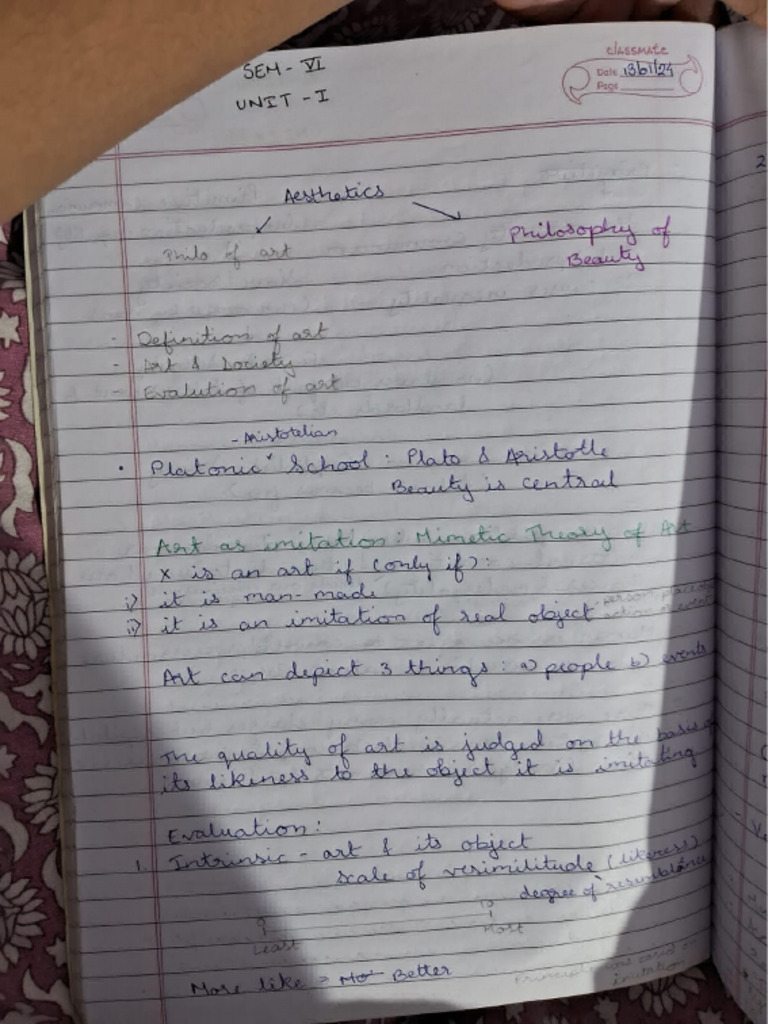 classmate
SEM - VI
Date 13/01/24
Page
UNIT - I
Aesthetics
Philo of art
Philosophy of
Beauty
- Definition of art
- Art & Society
- Evalution of art
- Aristotelian
• Platonic School : Plato & Aristotle
Beauty is central
Art as imitation : Mimetic Theory of Art
X is an art if (only if) :
i) it is man-made
ii) it is an imitation of real object
Art can depict 3 things : a) people b) events
The quality of art is judged on the basis
its likeness to the object it is imitating
Evaluation :
1. Intrinsic - art & its object
scale of verisimilitude (likeness)
degree of resemblance
0 10
Least Most
More like = Better
imitation